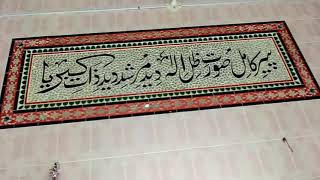 پیر کامل صورت ظل الہ دید مرشد دید ذات کبریا